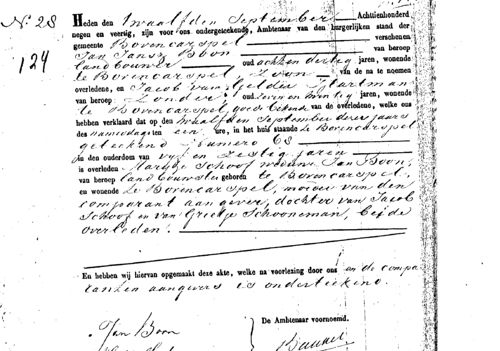 No. 28
124
Heden den twaalfden September Achttienhonderd
negen en veertig, zijn voor ons ondergeteekende, Ambtenaar van den burgerlijken stand der
gemeente Bovencarspel verschenen
Jan Jansz Boon van beroep
landbouwer oud achtendertig jaren, wonende
te Bovencarspel, Zoon van de na te noemen
overledene, en Jacob van Gelder Hartman
van beroep Zonder oud jaren, wonende
te Bovencarspel, goede bekende van de overledene, welke ons
hebben verklaard dat op den twaalfden September dezes jaars
des namiddags ten een ure, in het huis staande te Bovencarspel
geteekend numero 63
in den ouderdom van vyf en zestig jaren
is overleden Maritje Schoof weduwe Jan Boon,
van beroep landbouwster geboren te Bovencarspel,
en wonende te Bovencarspel, moeder van den
comparant aangever, dochter van Jacob
Schoof en van Grietje Schooneman, beide
overleden.
En hebben wij hiervan opgemaakt deze akte, welke na voorlezing door ons en de compa-
ranten aangevers is onderteekend.
De Ambtenaar voornoemd.
Jan Boon